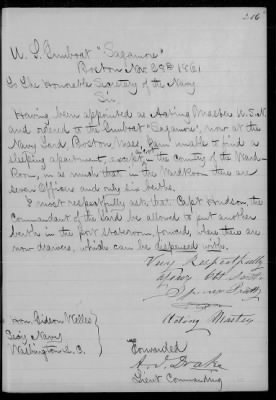 236
U. S. Gunboat "Sagamore"
Boston Nov 29th 1861
To The Honorable Secretary of the Navy
Sir
Having been appointed as Acting Master U.S.N
and ordered to the Gunboat "Sagamore", now at the
Navy Yard Boston Mass, I am unable to find a
sleeping apartment, except in the country of the Ward-
Room, in as much that in the Wardroom there are
seven Officers and only six berths.
I most respectfully ask that Capt Hudson, the
Commandant of the Yard be allowed to put another
berth in the port stateroom, forward, where there are
now drawers, which can be dispensed with.
Very Respectfully
Your Obt Servt
Acting Master
Hon. Gideon Welles
Secy Navy
Washington D. C.
Forwarded
A. J. Drake
Lieut Commanding